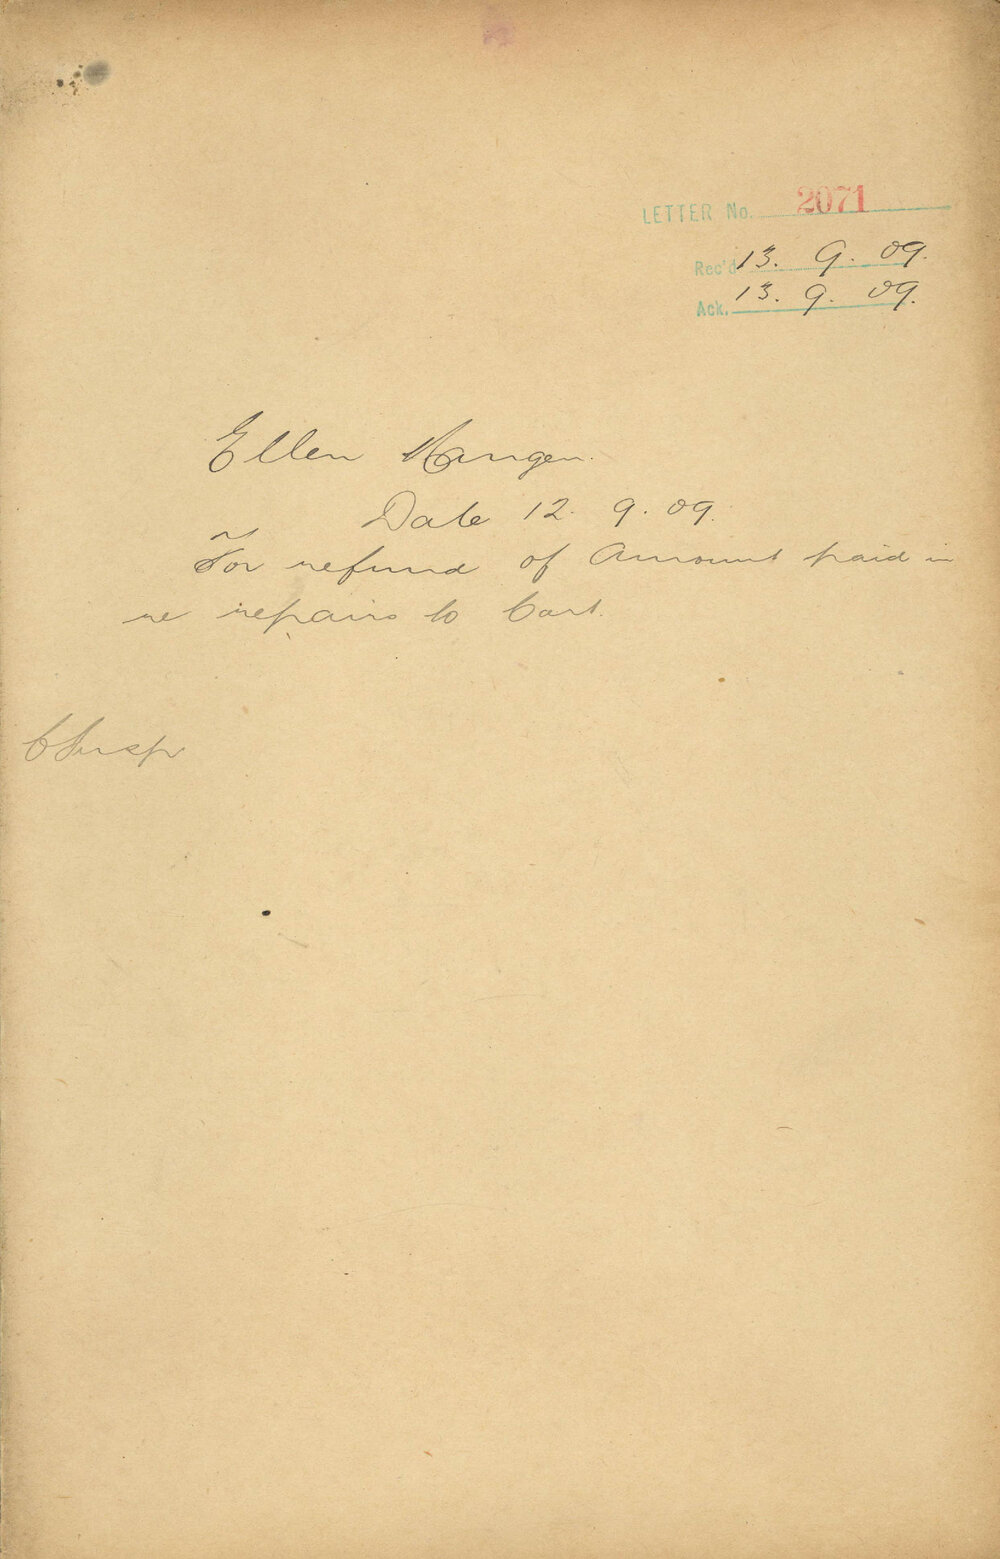 LETTER No. 2071
Rec'd 13. 9. 09.
Ack. 13. 9. 09.
Ellen
Date 12. 9. 09.
For refund of Amount paid in
re repairs to Cart.
C Insp